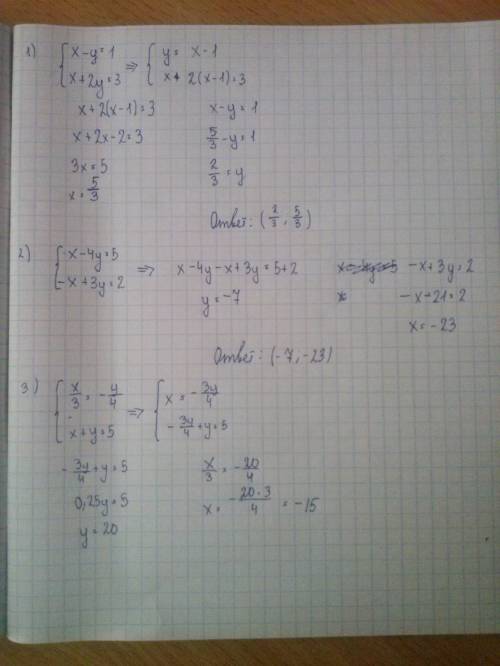 1) { x-y=1 => { y= x-1
x+2y=3 x+ 2(x-1)=3
x+2(x-1)=3 x-y=1
x+2x-2=3 5/3-y=1
3x=5 2/3=y
x=5/3
Ответ: (2/3, 5/3)
2) { x-4y=5 => x-4y-x+3y=5+2 x-4y=5 -x+3y=2
-x+3y=2 y=-7 x -x-21=2
x=-23
Ответ: (-7,-23)
3) { x/3 = -y/4 => { x = -3y/4
x+y=5 -3y/4+y=5
-3y/4+y=5 x/3=-20/4
0,25y=5 x= -20·3/4 = -15
y=20